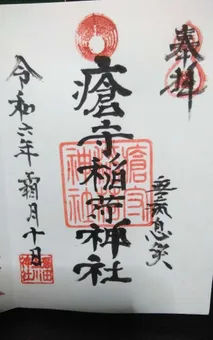 奉拝
無病息災
瘡守稲荷神社
瘡守稲荷神社
令和六年 霜月十日